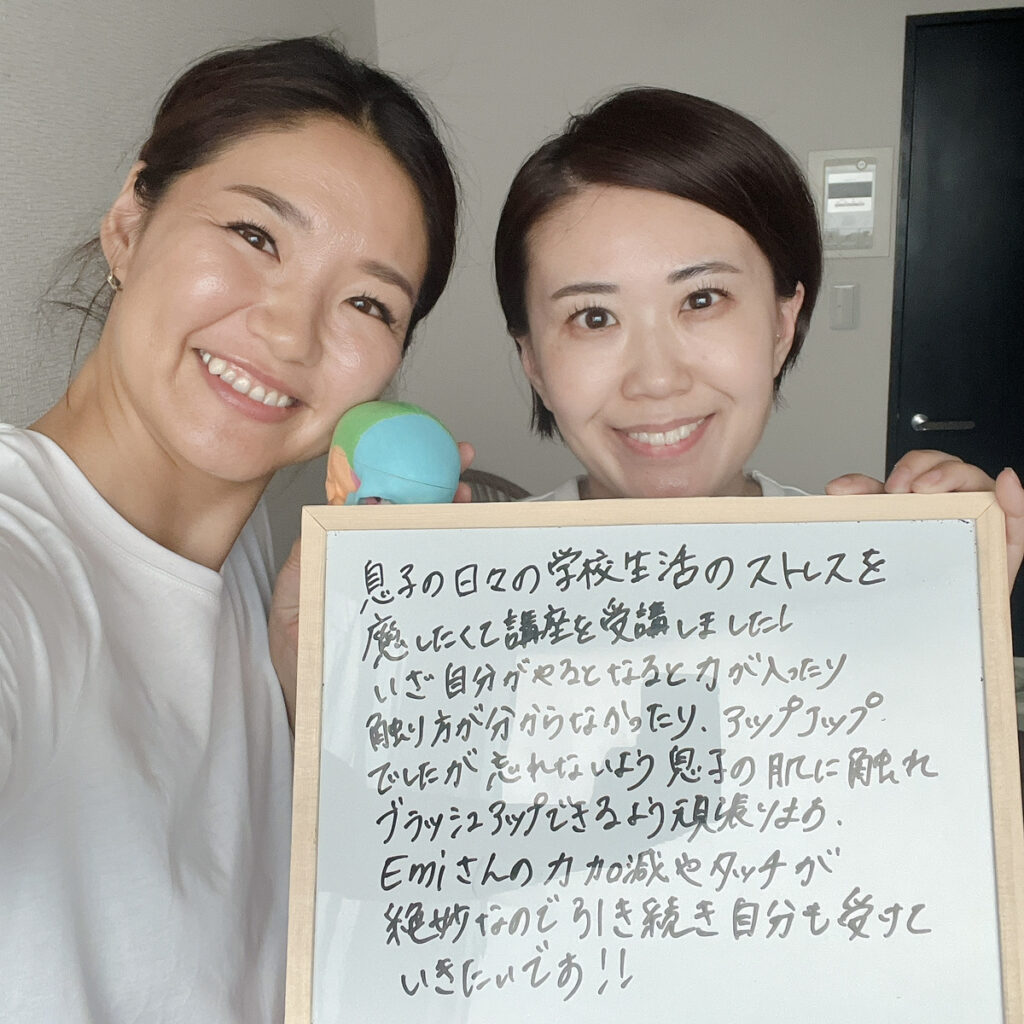 息子の日々の学校生活のストレスを
癒したくて講座を受講しました!
いざ自分がやるとなると力が入ったり
触り方が分からなかったり、アップアップ
でしたが忘れないよう息子の肌に触れ
ブラッシュアップできるよう頑張ります.
Emiさんの力加減やタッチが
絶妙なので引き続き自分も受けて
いきたいです!!